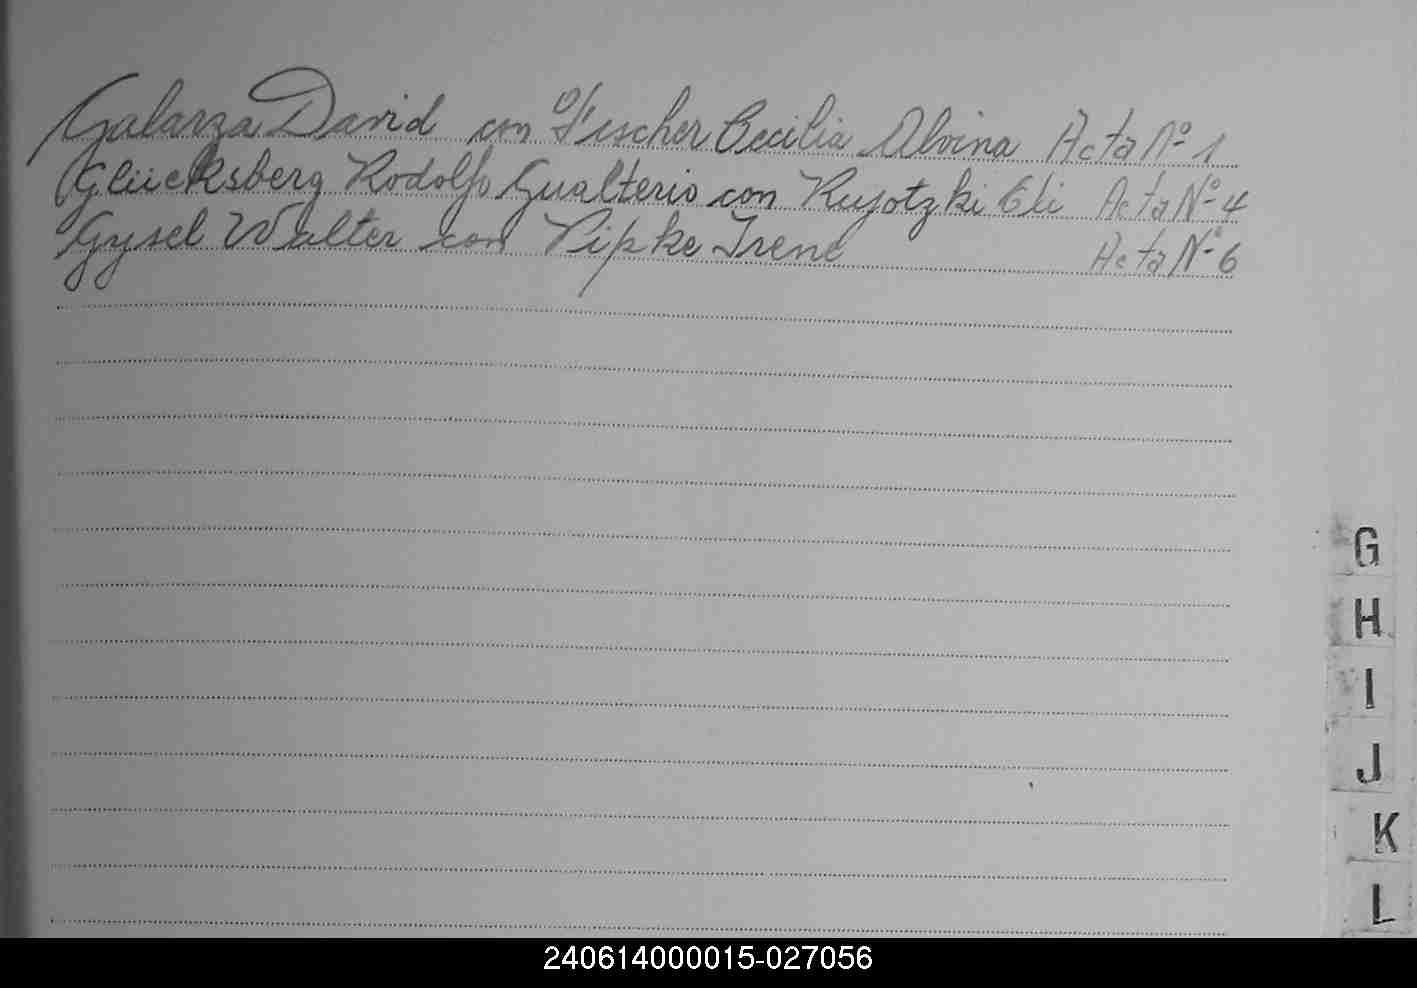 Galarza David con Fischer Cecilia Alvina Acta Nº 1
Glücksberg Rodolfo Gualterio con Kujotzki Eli Acta Nº 4
Gysel Walter con Pipke Irene Acta Nº 6
G
H
I
J
K
L
240614000015-027056